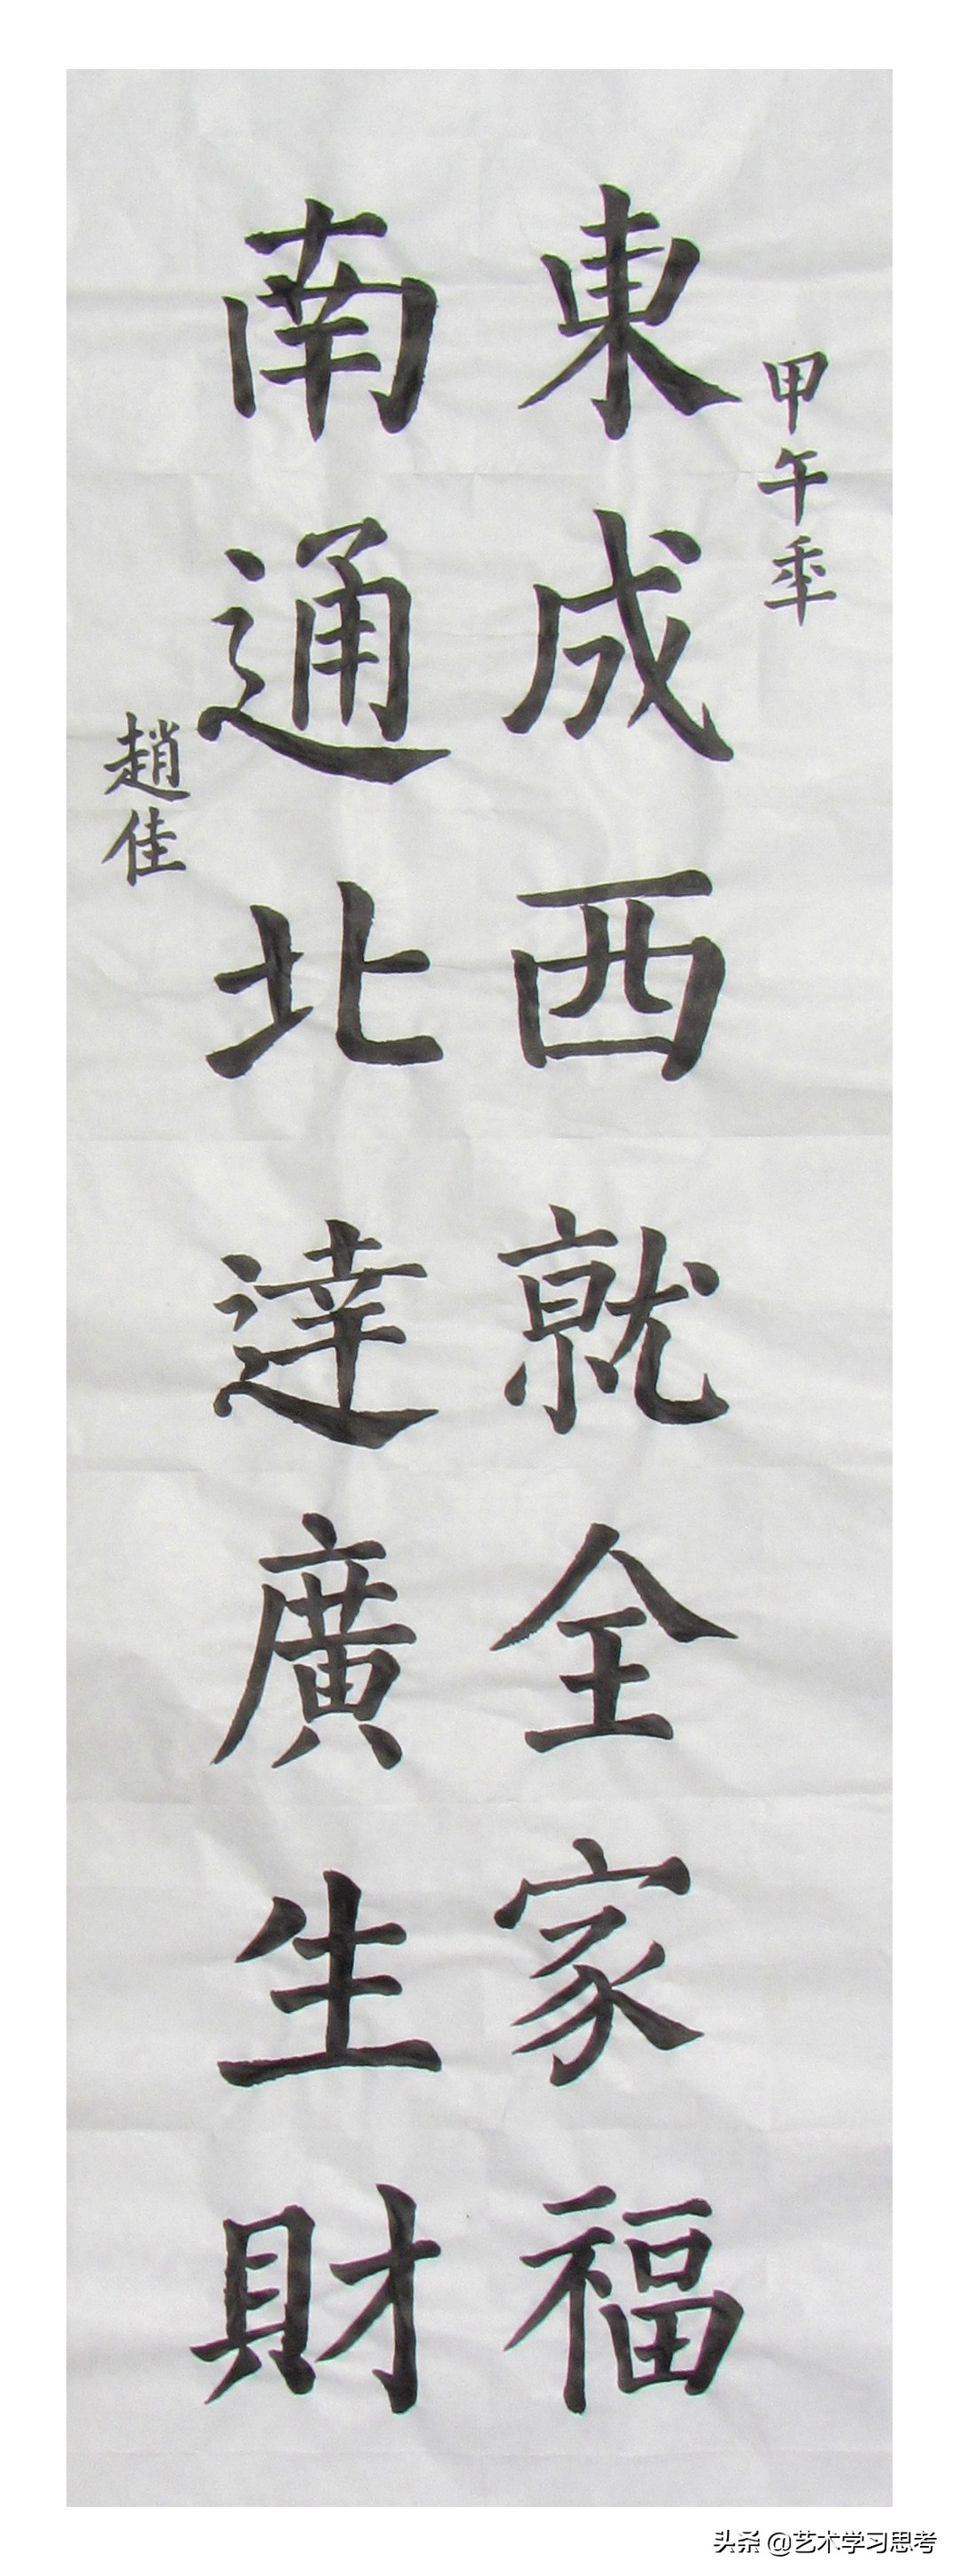 甲午年
東成西就全家福
南通北達廣生財
趙佳
头条 @艺术学习思考